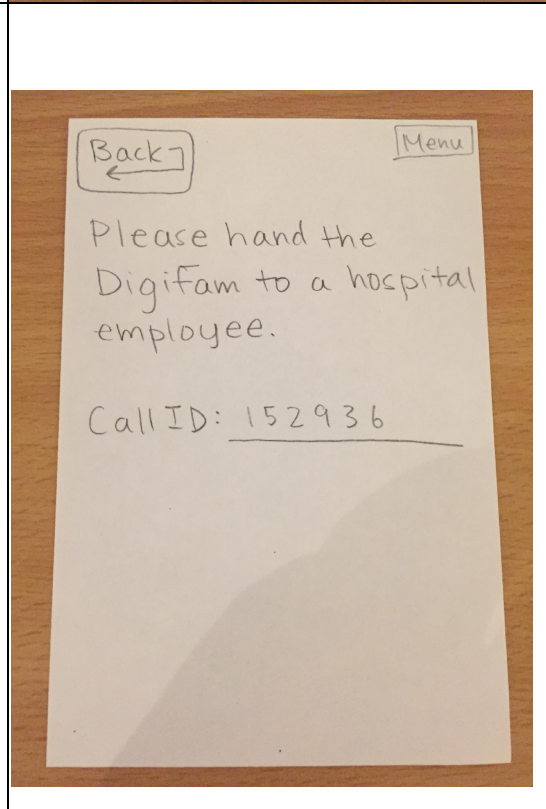 Back
Menu
Please hand the
Digifam to a hospital
employee.
Call ID: 152936